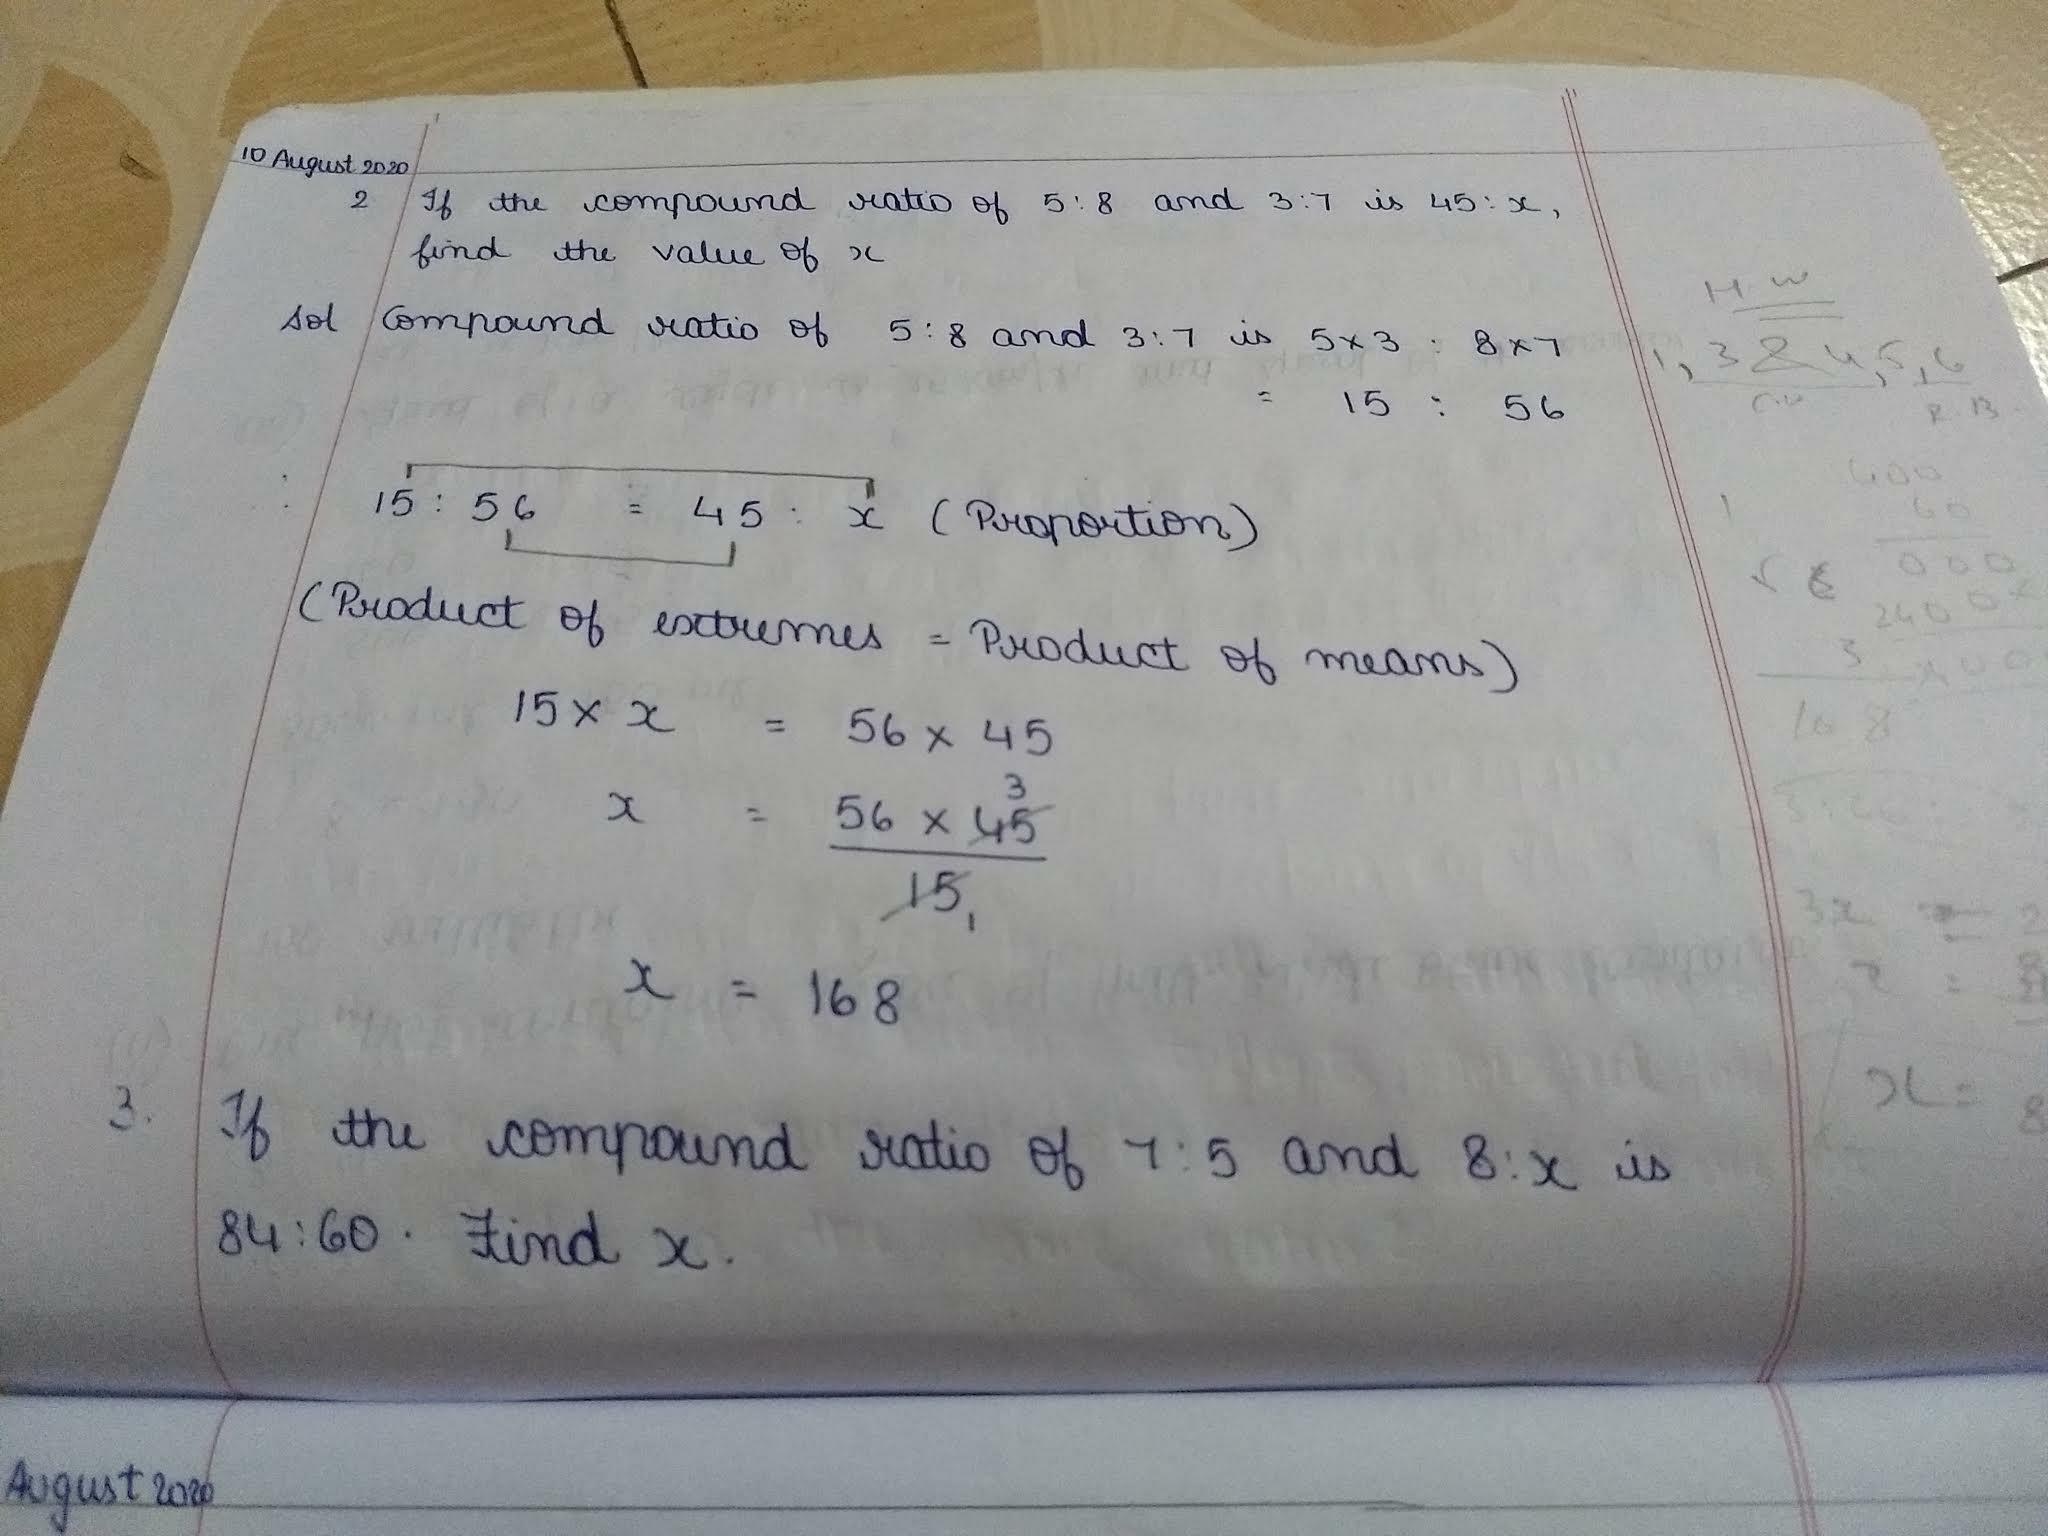 10 August 2020
2 If the compound ratio of 5:8 and 3:7 is 45:x,
find the value of x
Sol Compound ratio of 5:8 and 3:7 is 5x3 : 8x7
= 15 : 56
∴ 15:56 = 45:x (Proportion)
(Product of extremes = Product of means)
15 x x = 56 x 45
x = 56 x 45 3
15 1
x = 168
3. If the compound ratio of 7:5 and 8:x is
84:60. Find x.
August 2020
HW
1, 3 & 4, 5, 6
R B.
400
60
000
2400x
3
168
3x = 2
x =
x = 8